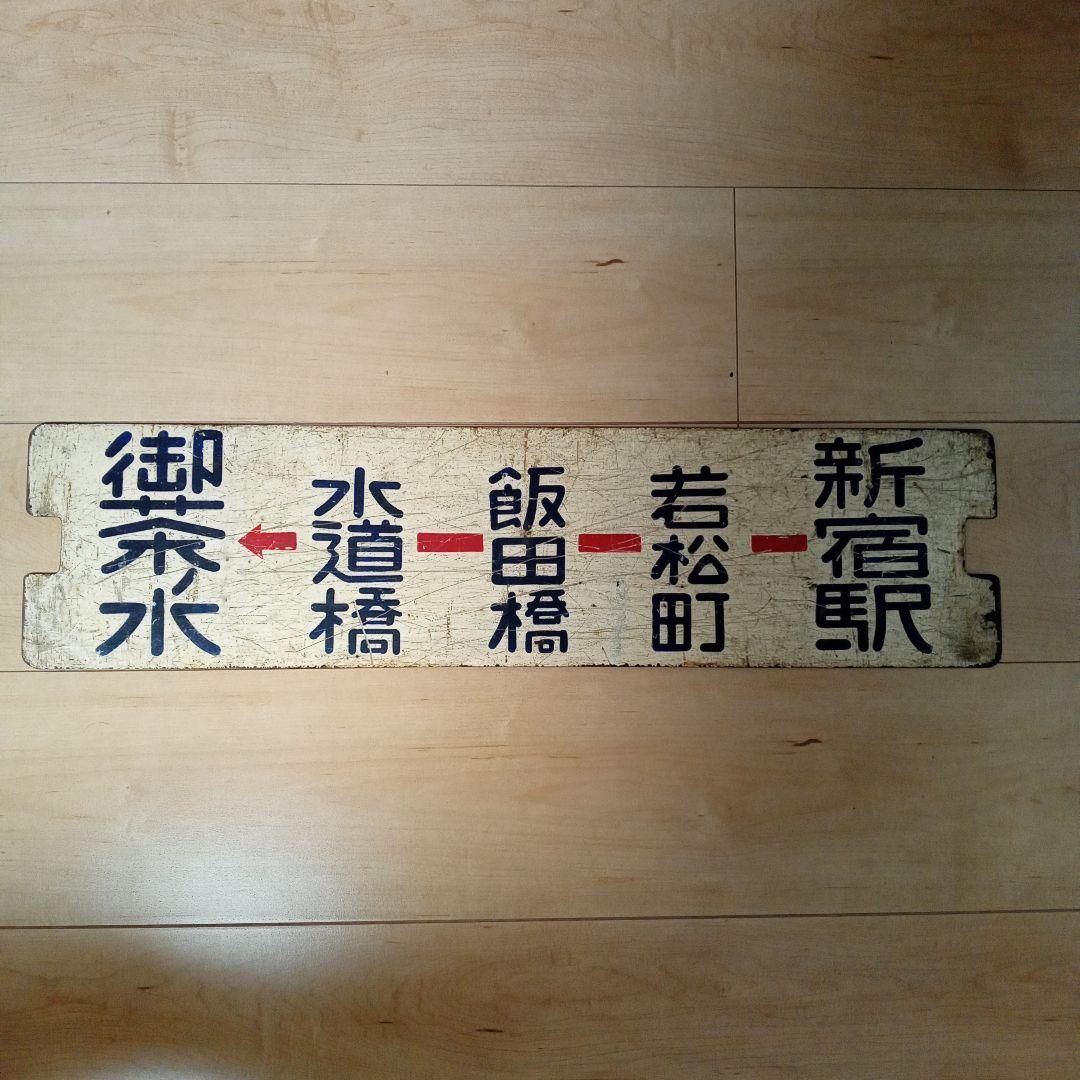 新宿駅
若松町
飯田橋
水道橋
御茶ノ水